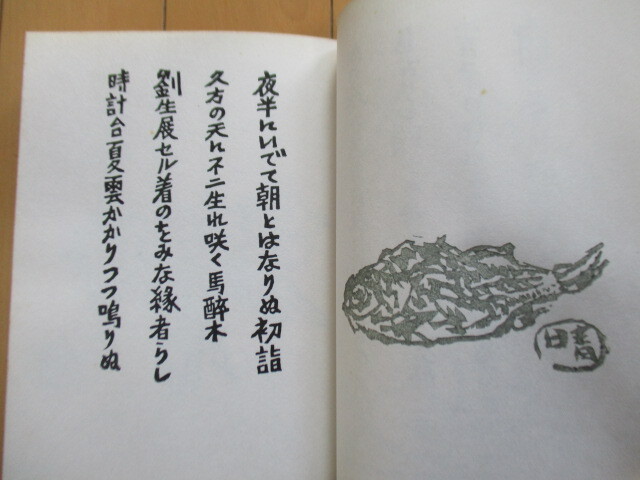 夜半にいでて朝とはなりぬ初詣
久方の天に不二生れ咲く馬醉木
劉生展セル着のをみな縁者らし
時計台夏雲かかりつつ鳴りぬ
晴